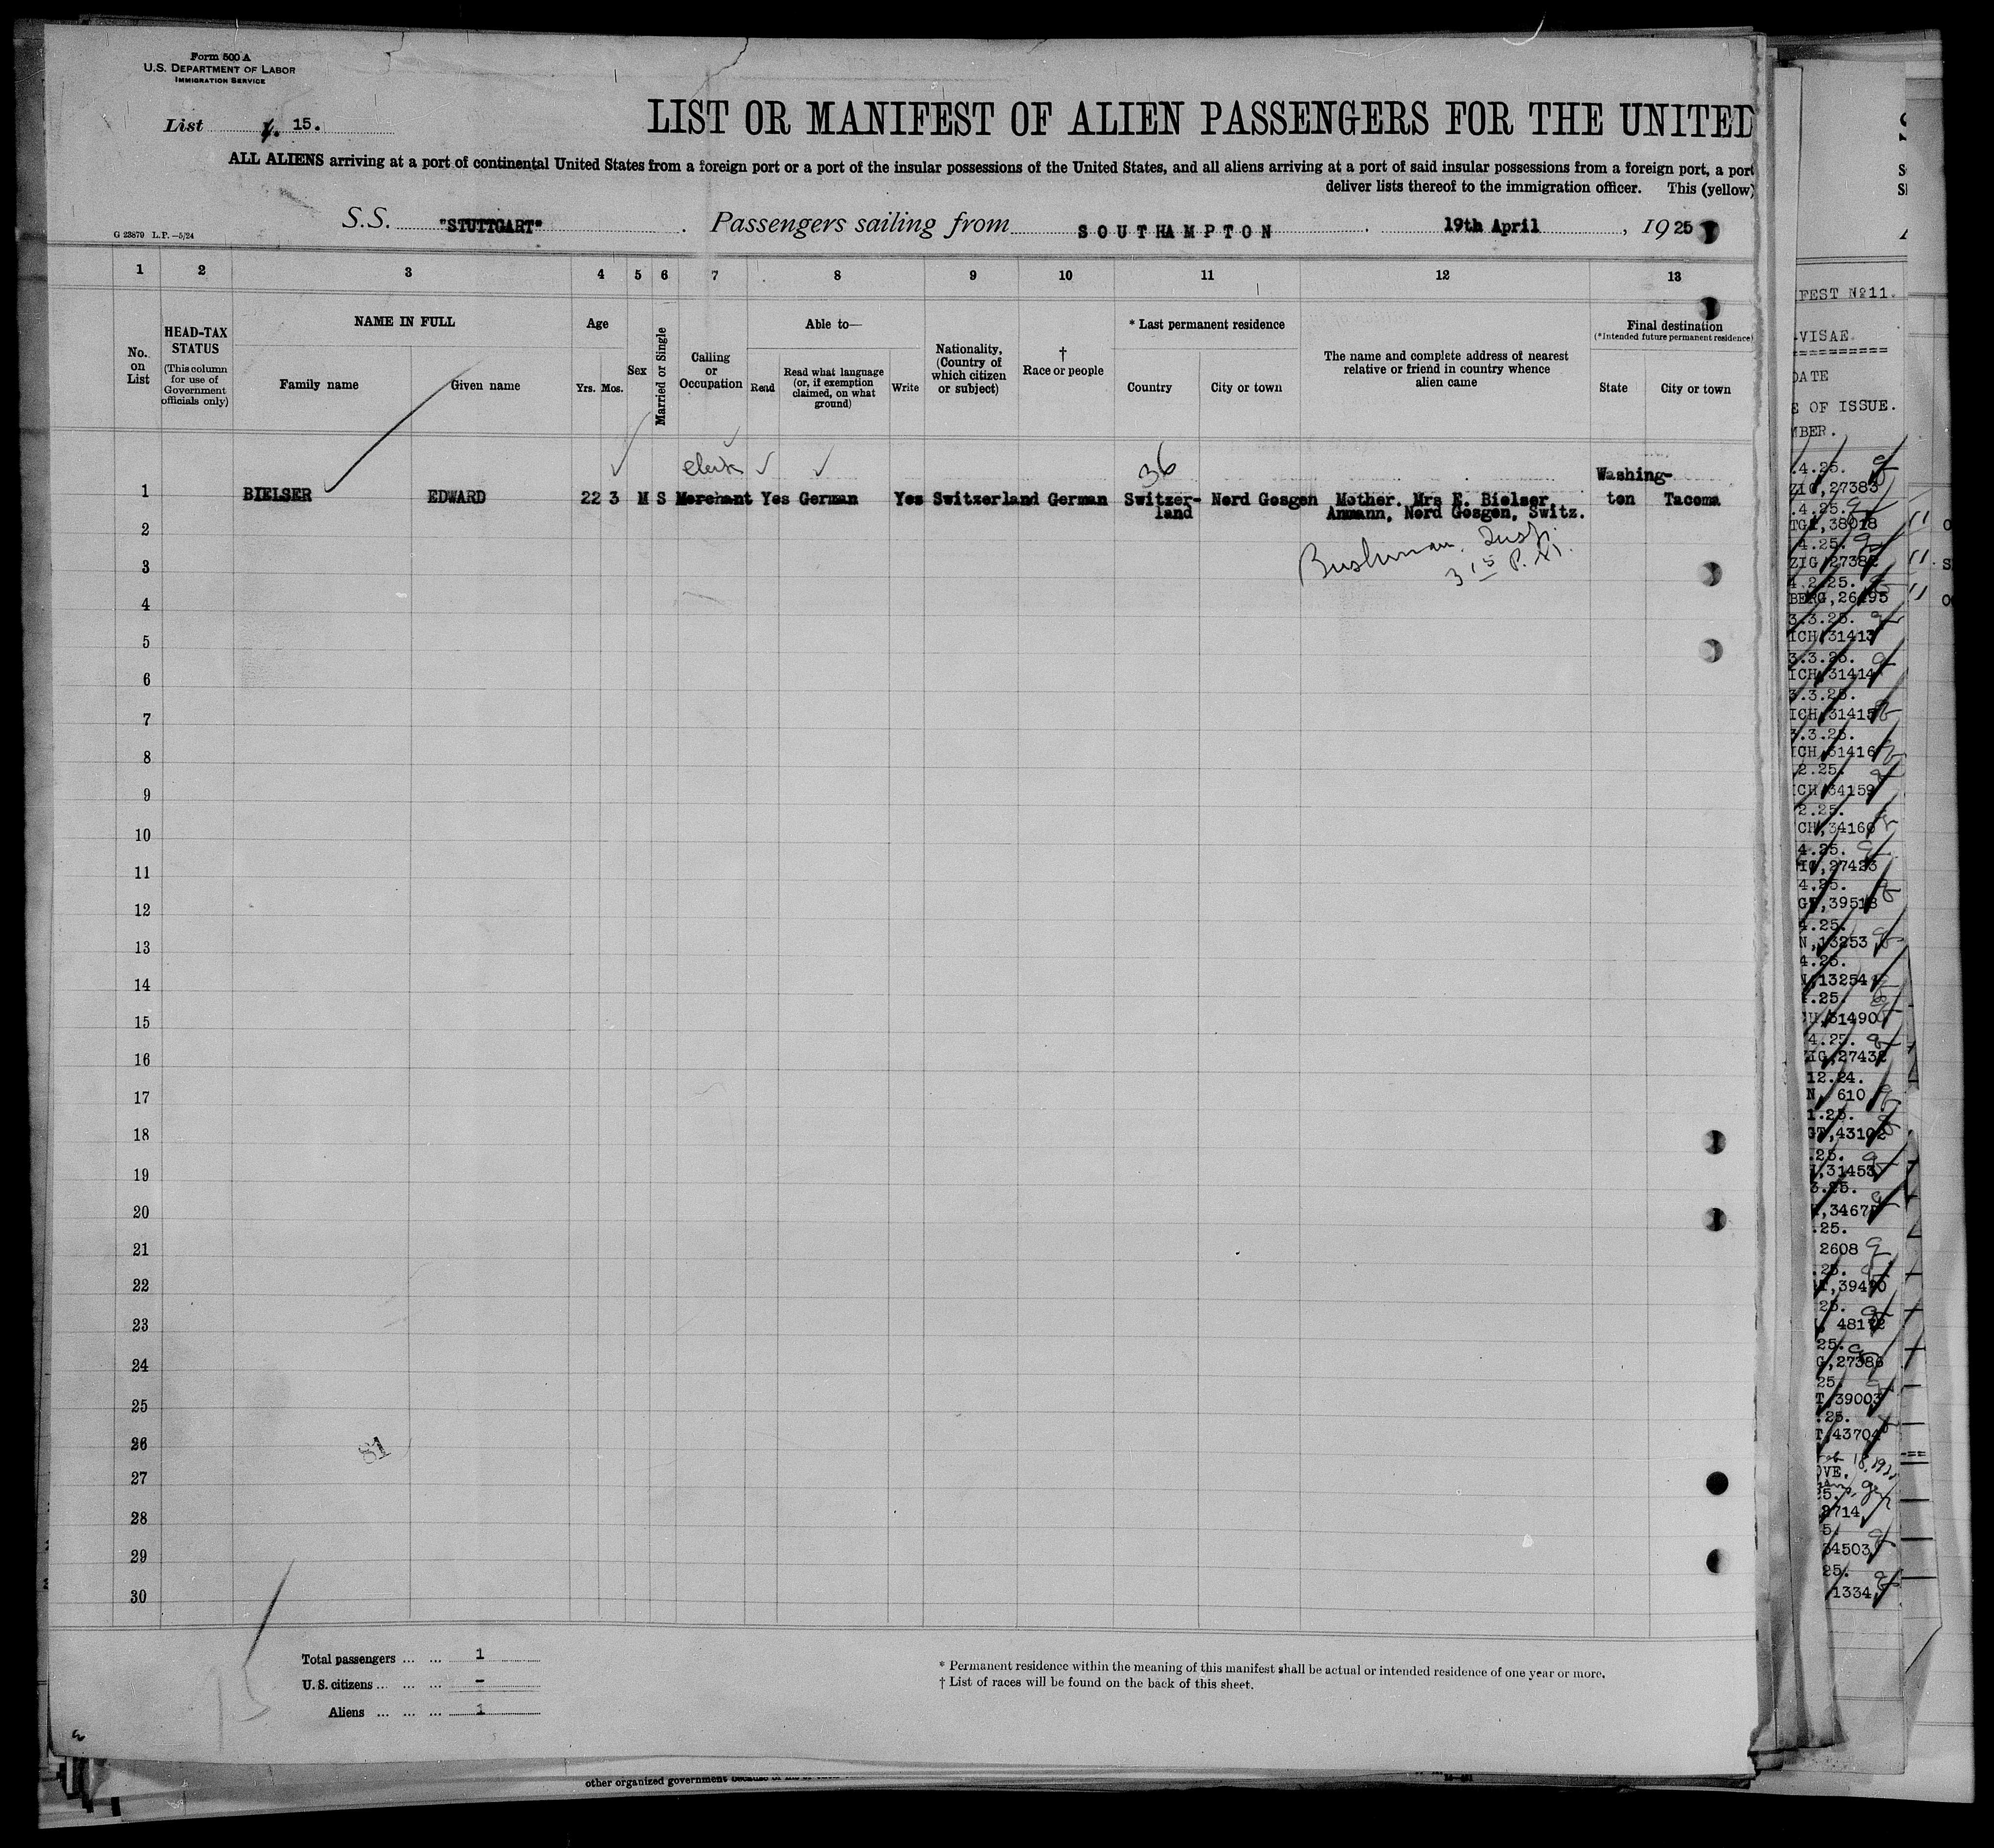 Form 500 A
U.S. DEPARTMENT OF LABOR
IMMIGRATION SERVICE
List 15.
LIST OR MANIFEST OF ALIEN PASSENGERS FOR THE UNITED
ALL ALIENS arriving at a port of continental United States from a foreign port or a port of the insular possessions of the United States, and all aliens arriving at a port of said insular possessions from a foreign port, a port
deliver lists thereof to the immigration officer. This (yellow)
S.S. "STUTTGART". Passengers sailing from SOUTHAMPTON. 19th April, 1925
G 23879 L.P.—5/24
1 2 3 4 5 6 7 8 9 10 11 12 13
No. on List
HEAD-TAX STATUS
(This column for use of Government officials only)
NAME IN FULL
Family name
Given name
Age
Yrs. Mos.
Sex
Married or Single
Calling or Occupation
Able to—
Read
Read what language (or, if exemption claimed, on what ground)
Write
Nationality. (Country of which citizen or subject)
† Race or people
* Last permanent residence
Country
City or town
The name and complete address of nearest relative or friend in country whence alien came
Final destination
(*Intended future permanent residence)
State
City or town
clerk
36
1 BIELSER EDWARD 22 3 M S Merchant Yes German Yes Switzerland German Switzer-land Nord Gosgen Mother. Mrs E. Bielser Ammann, Nord Gosgen, Switz. Washing-ton Tacoma
2
3
4
5
6
7
8
9
10
11
12
13
14
15
16
17
18
19
20
21
22
23
24
25
26
27
28
29
30
81
Total passengers ... ... 1
U.S. citizens ... ... ... -
Aliens ... ... ... 1
* Permanent residence within the meaning of this manifest shall be actual or intended residence of one year or more.
† List of races will be found on the back of this sheet.
other organized government because of
FEST Nº11.
VISAE.
DATE
E OF ISSUE.
MBER.
.4.25.
ZIG,27383
.4.25.
38018
4.25.
ZIG,27382
2.25.
BERG,26495
3.3.25.
ICH,31413
3.3.25.
ICH,31414
3.3.25.
ICH,31415
3.3.25.
ICH,31416
2.25.
ICH,34159
2.25.
CH,34160
4.25.
27423
4.25.
GT,39518
4.25.
N,13253
4.25.
13254
.25.
31490
4.25.
ZIG,27432
12.24.
N, 610
1.25.
GT,43102
.25.
31453
3.25.
.25.
2608
.25.
.25.
48172
25.
G,27386
25.
T,39003
.25.
T,43704
2714
34503
25.
1334